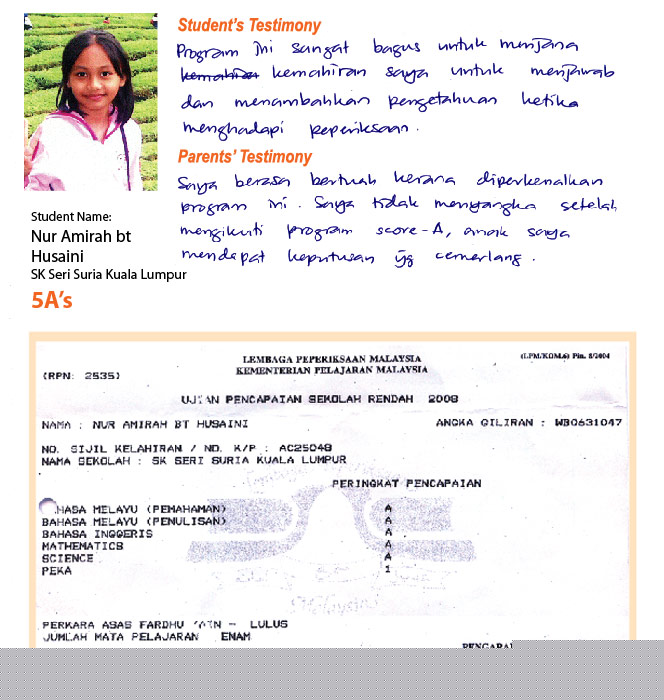 Student's Testimony
Program ini sangat bagus untuk menjana
kemahiran kemahiran saya untuk menjawab
dan menambahkan pengetahuan ketika
menghadapi peperiksaan.
Parents' Testimony
Saya berasa bertuah kerana diperkenalkan
program ini. Saya tidak menyangka setelah
mengikuti program score-A, anak saya
mendapat keputusan yg cemerlang.
Student Name:
Nur Amirah bt
Husaini
SK Seri Suria Kuala Lumpur
5A's
LEMBAGA PEPERIKSAAN MALAYSIA
KEMENTERIAN PELAJARAN MALAYSIA
(LPM/KOM.6) Pin. 8/2004
(RPN: 2535)
UJIAN PENCAPAIAN SEKOLAH RENDAH 2008
NAMA : NUR AMIRAH BT HUSAINI
ANGKA GILIRAN : WB0631047
NO. SIJIL KELAHIRAN / NO. K/P : AC25048
NAMA SEKOLAH : SK SERI SURIA KUALA LUMPUR
PERINGKAT PENCAPAIAN
HASA MELAYU (PEMAHAMAN) A
BAHASA MELAYU (PENULISAN) A
BAHASA INGGERIS A
MATHEMATICS A
SCIENCE A
PEKA 1
Malaysia
PERKARA ASAS FARDHU 'AIN - LULUS
JUMLAH MATA PELAJARAN ENAM